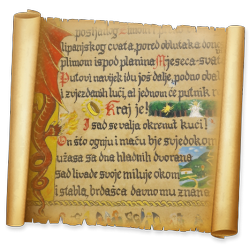 lipanjskog cvata, pored oblutaka
plimom ispod planina Mjeseca
Putovi navijek idu još dalje, podno
i zvjezdanih kući, al jednom će putnik
Kraj je!
I sad se valja okrenut kući!
On što ognju i maču bje svjedok
užasa za dna hladnih dvorana
sad livade svoje miluje okom
i stabla, brdašca davno mu znana